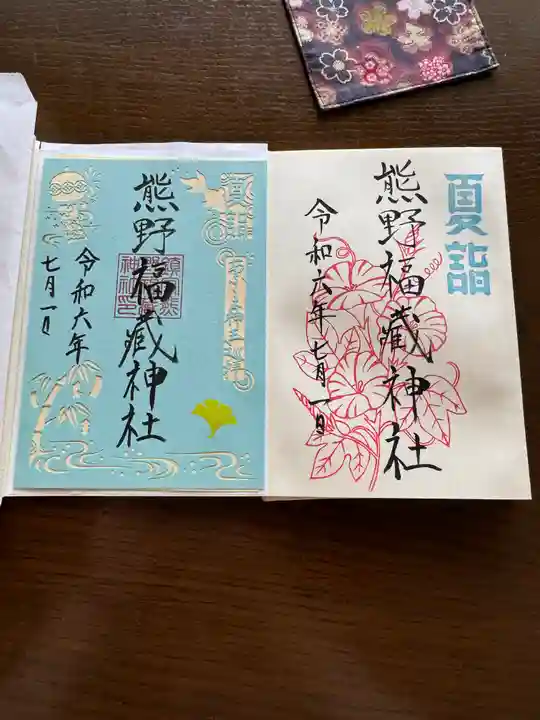 夏詣
熊野福蔵神社
令和六年
七月一日
夏詣
熊野福藏神社
令和六年七月一日